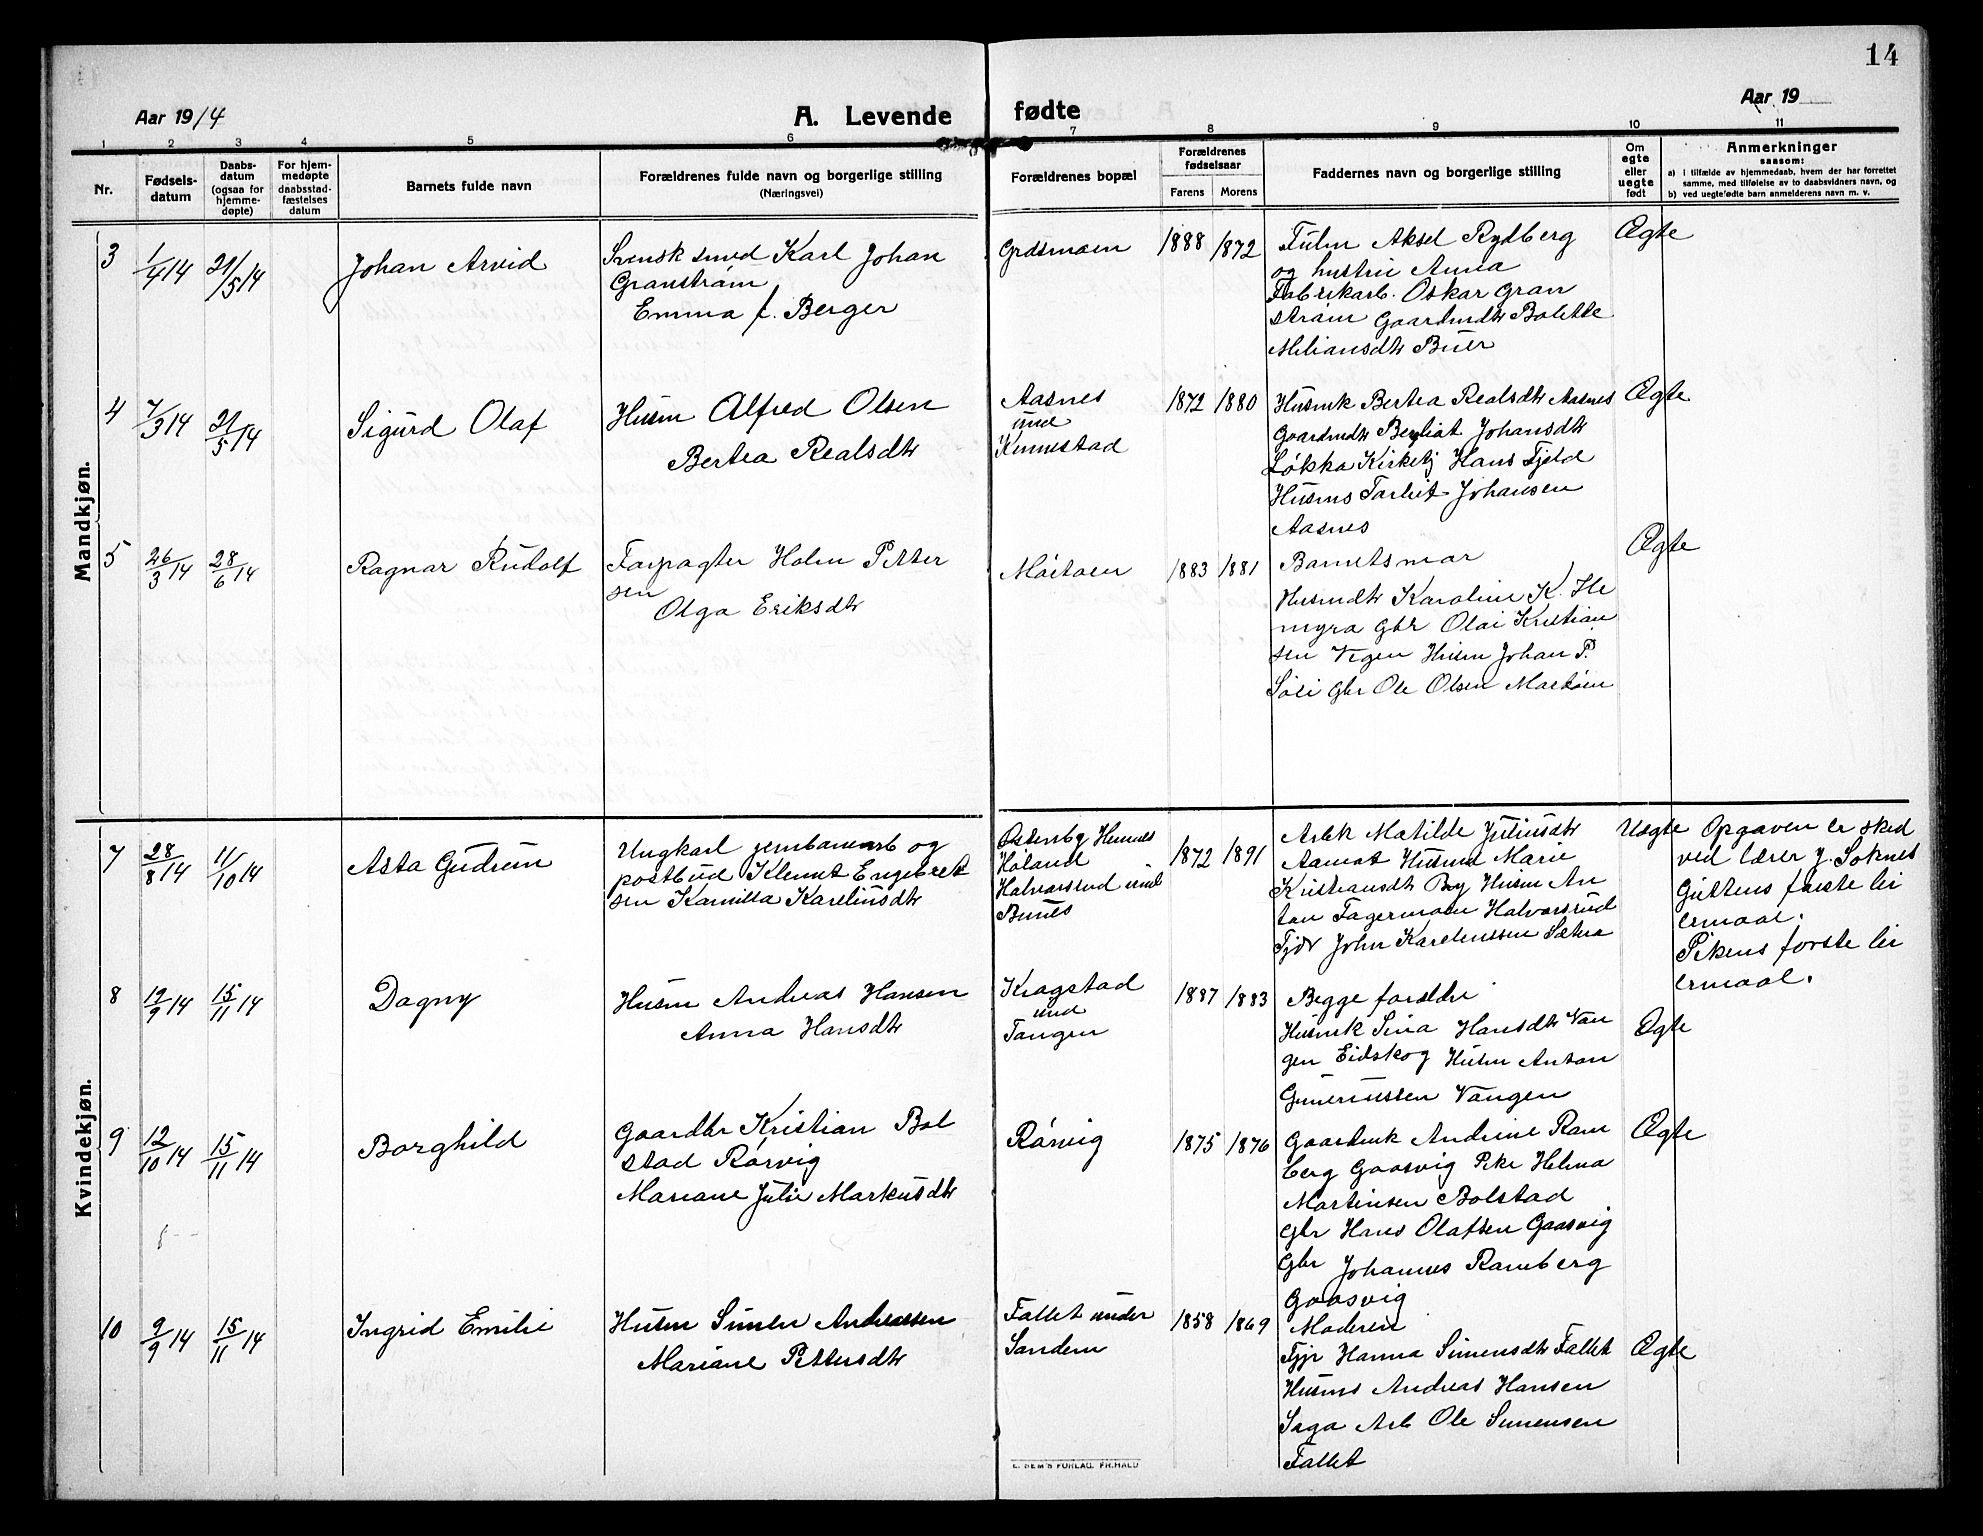 14
Aar 1914
A. Levende fødte
Aar 19
1 2 3 4 5 6 7 8 9 10 11
Nr.
Fødsels-
datum
Daabs-
datum
(ogsaa for
hjemme-
døpte)
For hjem-
medøpte
daabsstad-
fæstelses
datum
Barnets fulde navn
Forældrenes fulde navn og borgerlige stilling
(Næringsvei)
Forældrenes bopæl
Forældrenes
fødselsaar
Farens Morens
Faddernes navn og borgerlige stilling
Om
egte
eller
uegte
født
Anmerkninger
saasom:
a) i tilfælde av hjemmedaab, hvem der har forrettet
samme, med tilføielse av to daabsvidners navn, og
b) ved uegtefødte barn anmelderens navn m. v.
Mandkjøn.
3
1/4 14
21/5 14
Johan Arvid
Svensk smed Karl Johan
Granstrøm
Emma f. Berger
Grasmoen
1888 1872
Aksel Rydberg
og hustru Anna
Fabrikarb. Oskar Gran
strøm Gaardmdtr Bolette
Miliansdtr Buer
Ægte
4
7/3 14
21/5 14
Sigurd Olaf
Husm Alfred Olsen
Bertea Realsdtr
Aasnes
und
Kinnestad
1872 1880
Husmk Bertea Realsdtr Aasnes
Gaardmdtr Johansdtr
Løkka Kirketj Hans Fjeld
Husms Johansen
Aasnes
Ægte
5
26/3 14
28/6 14
Ragnar Rudolf
Forpagter Holm Petter
sen
Olga Eriksdtr
Moitoen
1883 1881
Barnetsmor
Husmdtr Karoline K. He
myra Gbr Olai Kristian
sen Vegen Husm Johan P.
Søli Gbr Ole Olsen
Ægte
Kvindekjøn.
7
28/8 14
11/10 14
Asta Gudrun
Ungkarl jernbanearb og
postbud Klemet Engebret
sen Kamilla Karelinsdtr
Østersby Hemnes
Høland
Halvorsrud und
Bunes
1872 1891
Arbk Matilde Juliusdtr
Aamot Husmd Marie
Kristiansdtr By Husm An
ton Fagermoen Halvorsrud
John Karelinssen Sætra
Uægte
Opgaven er sked
ved lærer J. Soknes
Guttens første lei
ermaal.
Pikens første lei
ermaal.
8
19/9 14
15/11 14
Dagny
Husm Andreas Hansen
Anna Hansdtr
Kragstad
und
Tangen
1887 1883
Begge forældre
Husmk Sina Hansdtr Van
gen Eidskog Husm Anton
Guneriussen Vangen
Ægte
9
12/10 14
15/11 14
Borghild
Gaardbr Kristian Bol
stad Rørvig
Mariane Julie Markusdtr
Rørvig
1875 1876
Gaardmk Andrine Ram
berg Gaasvig Pike Helma
Martinsen Bolstad
Gbr Hans Olafsen Gaasvig
Gbr Johannes Ramberg
Gaasvig
Ægte
10
9/9 14
15/11 14
Ingrid Emilie
Husm Simen Andreassen
Mariane Pettersdtr
Fallet under
Sandem
1858 1869
Moderen
Tjp Hanna Simensdtr Fallet
Husms Andreas Hansen
Saga Arb Ole Simensen
Fallet
Ægte
E. SEM'S FORLAG, FR.HALD